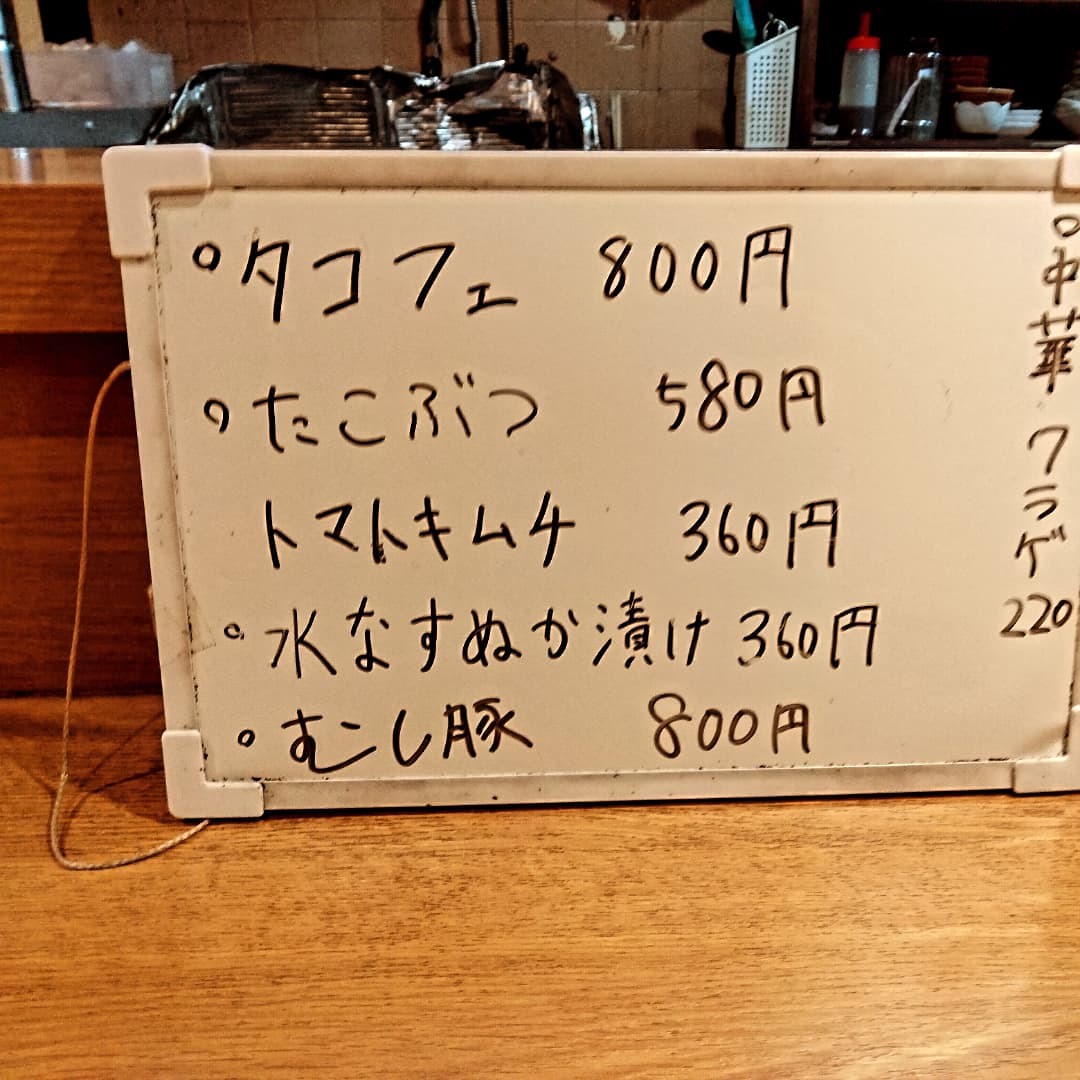 。タコフェ 800円
。たこぶつ 580円
トマトキムチ 360円
。水なすぬか漬け 360円
。むこし豚 800円
。中華クラゲ 220